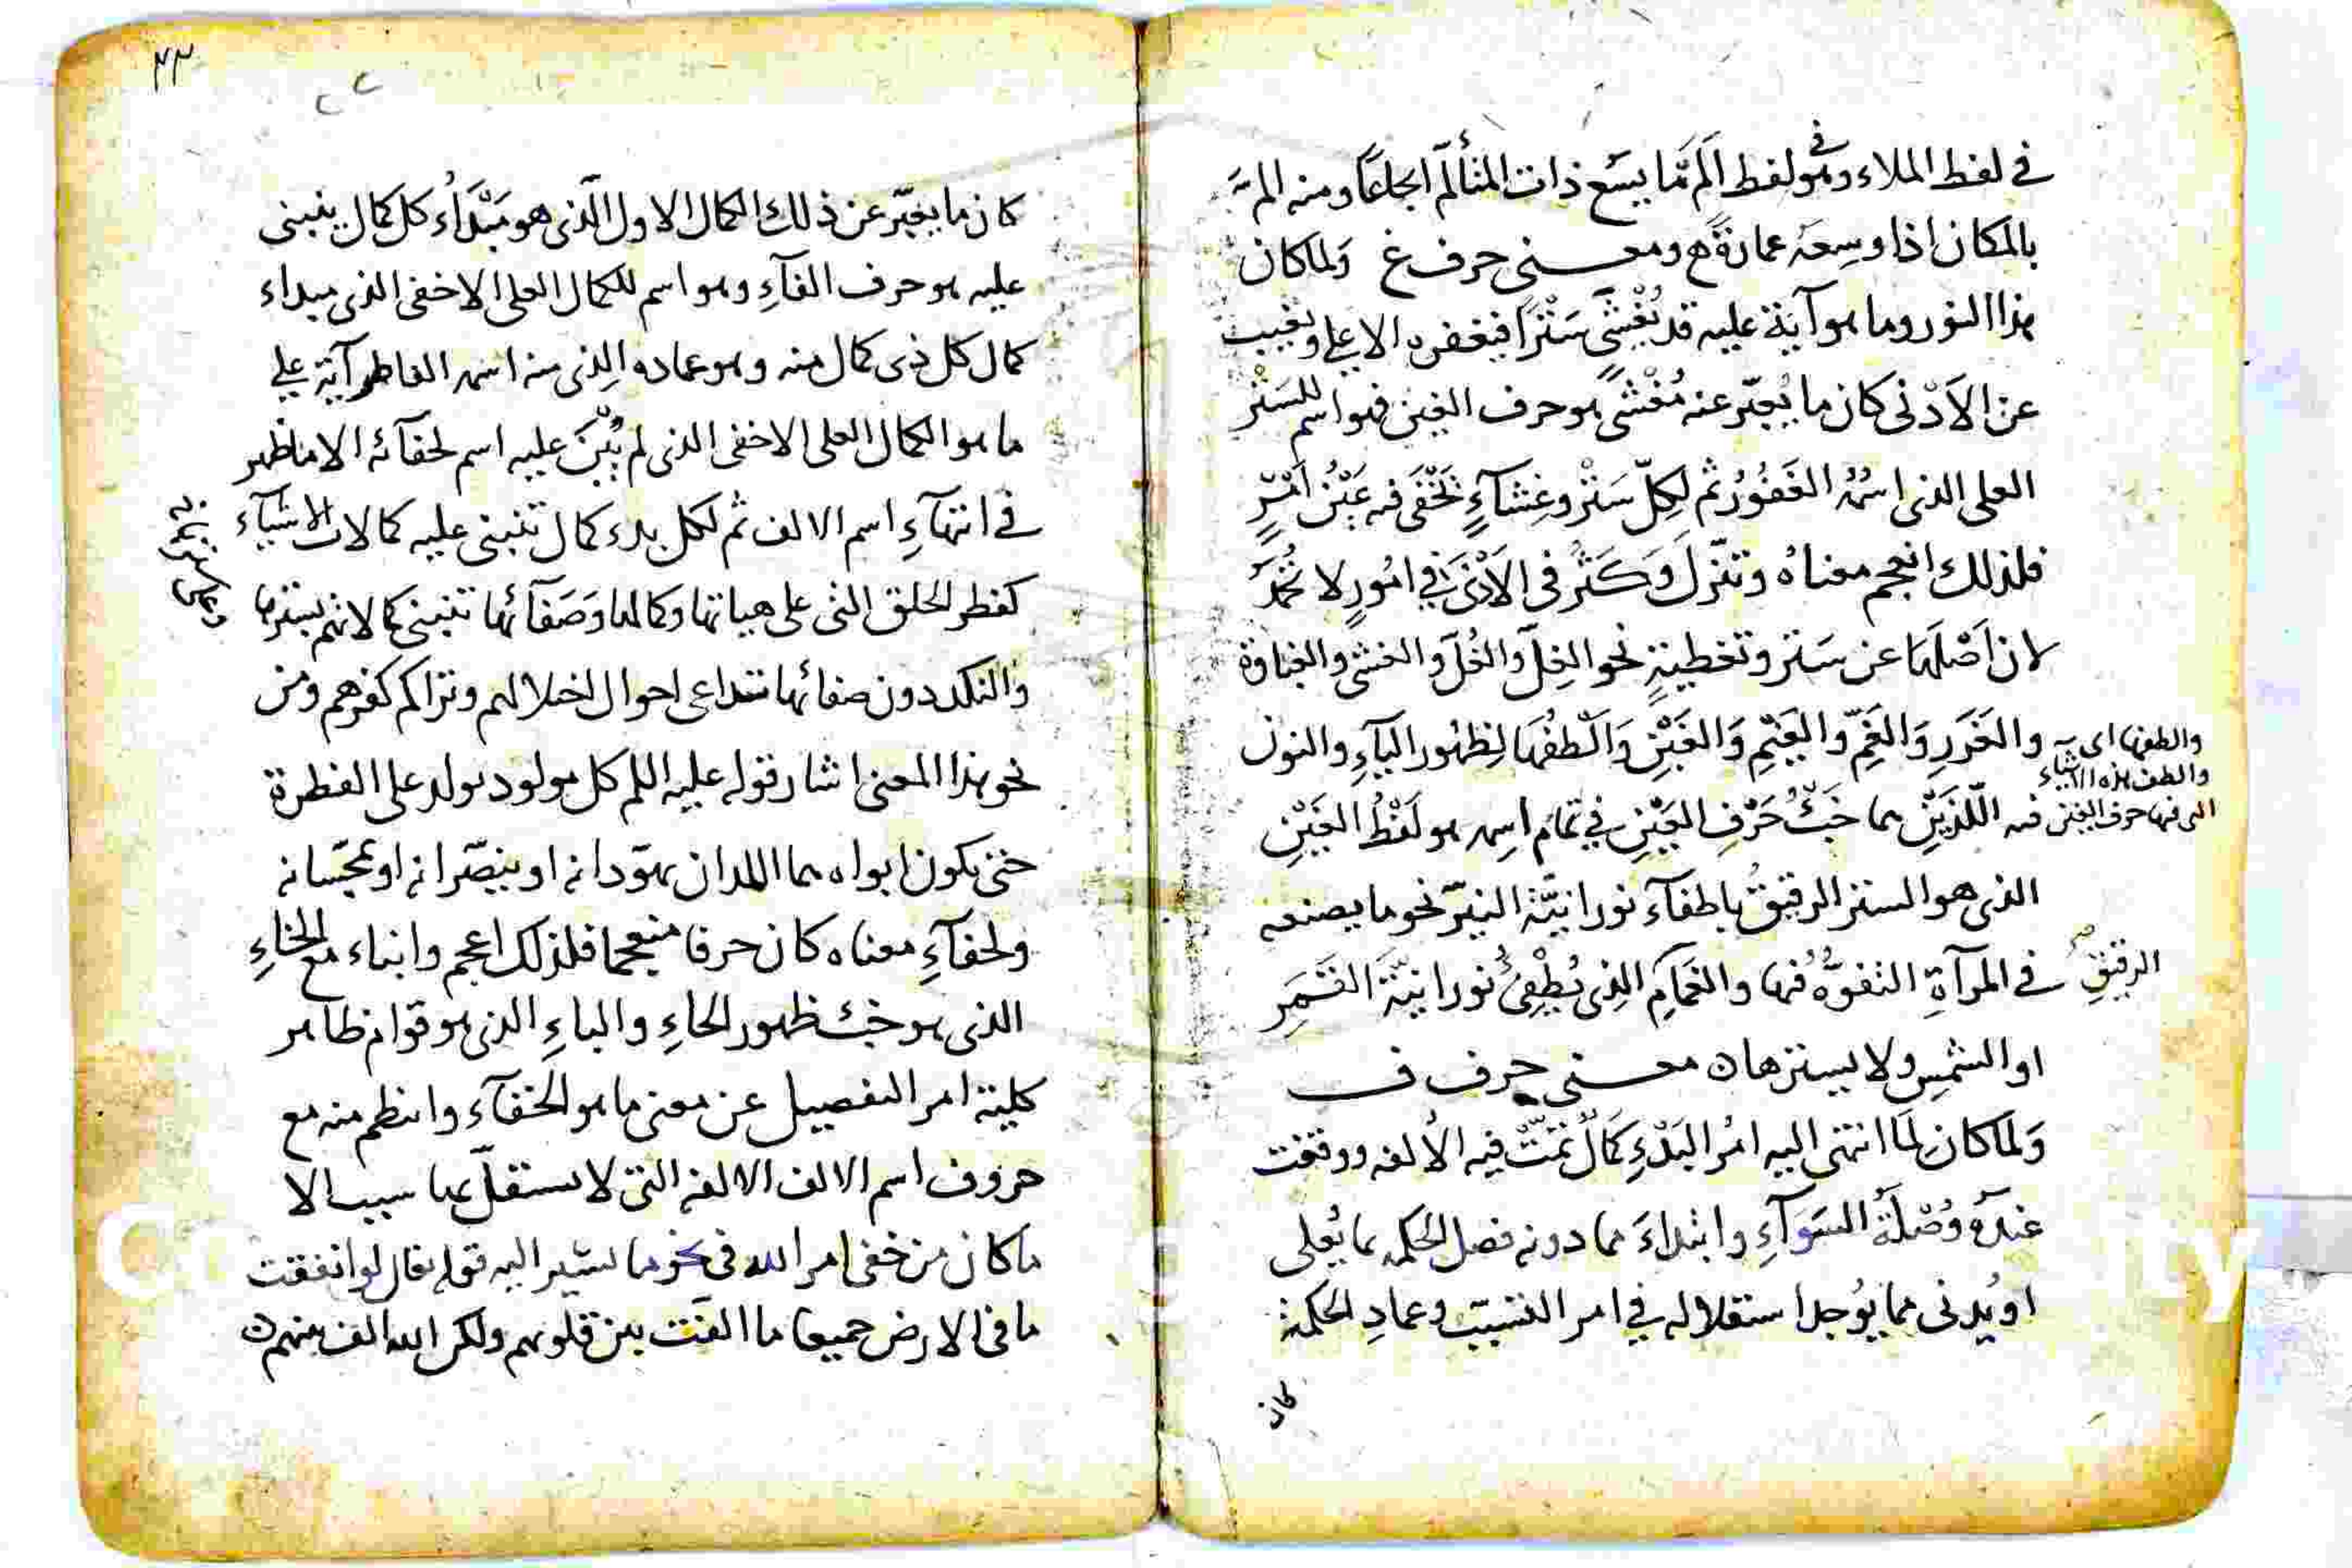 في لفظ الملاء وهو في لفظ الم مما يسع ذات المتألم اجماعًا ومنه الم
بالمكان اذا وسعه عمارة ومعنى حرف غ ولما كان
هذا النور وما هو آية عليه قد يُغْشَى سَتْرًا فيغفره الاعلى ويغيب
عن الاَدْنى كان ما يُعبّر عنه مُغْشًى هو حرف الغين فهو اسم للسَتْر
العلى الذى اسمُه الغَفُورُ ثم لِكلّ سَتْر وغِشآءٍ تَخْفَى فيه عَيْنُ اَمْرٍ
فلذلك انعجم معناهُ وتنزّل وَكَثُر فى الاَدْنَى في امُورٍ لا تُحْمَدُ
لان اَصْلَها عن سَتر وتغطيةٍ نحو الغِلّ والغُلّ والغشى والغباوة
والغَرَرِ وَالغَمّ والغَيْمِ وَالغَيْنِ وَاَلْطفُهَا لِظهُور اليآءِ والنون
والطفها اى
والطف هذه الاشياء
التى فيها حرف الغين
فيه اللّذَيْنِ هما خَبْءُ حَرْفِ الغَيْنِ في تمام اسمِه هو لَفْظُ الغَيْنِ
الذى هو الستر الرقيقُ باطفآء نورانيّة النيّر نحو ما يصنعه
الرقيقِ
في المرآةِ التفوّهُ فيها والغمَامِ الذِى يُطْفِئُ نورانيّةَ القَمَرِ
او الشمسِ ولا يسترها ٥ معنى حرف ف
وَلما كان لِمَا انتهى اليه امُر البَدْءِ كمَالٌ تمّتْ فيه الاُلفه ووقفت
عندَهُ وُصْلَةُ السَوآءِ وابتداءَ مما دونه فصل الحكمه بما يُعلى
او يُدنى مما يُوجد استقلاله في امر التسبيب وعمادِ الحكمة
كان
٤٣
كان ما يعبّر عن ذلك الكمال الاول الّذى هو مَبْدَاُء كل كمال ينبنى
عليه هو حرف الفآءِ وهو اسم للكمال العلى الاخفى الذى مبداء
كمال كل ذى كمال منه وهو عماده الذِى منه اسمه الفاطر آية على
ما هو الكمال العلى الاخفى الذى لم يُبْنَ عليه اسم لخفآئه الا ما ظهر
في انتهآءِ اسم الالف ثم لكل بدء كمال تنبنى عليه كمالات الاشيآء
كفطر الخلق التى على هيأتها وكمالها وَصَفآئها تنبنى كمالاتهم
والتكدد دون صفائها تتداعى احوال اختلالهم وتراكم كفرهم ومن
نحو هذا المعنى اشار قوله عليه السلم كل مولود يولد على الفطرة
حتى يكون ابواه هما اللذان يهوّدانه او ينصّرانه او يمجّسانه
ولخفآءِ معناه كان حرفا منعجما فلذلك اعجم وانباء مع الخاءِ
الذى هو خبْء ظهور الحاءِ والباءِ الذى هو قوام ظاهر
كلية امر التفصيل عن معنى ما هو الخفآء وانتظم منه مع
حروف اسم الالف الالفه التى لا يستقلّ بها سبب الا
ما كان من خفى امر الله فى نحو ما يشير اليه قوله تعالى لو انفقت
ما فى الارض جميعا ما الّفت بين قلوبهم ولكن الله الف بينهم ٥